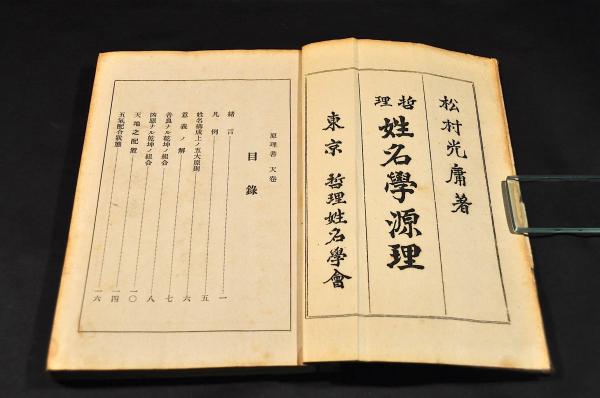 松村光庸著
哲理 姓名學源理
東京 哲理姓名學會
原理書 天卷
目錄
緒言 一
凡例
姓名構成上ノ五大原則 五
意義ノ解 六
善良ナル乾坤ノ組合 七
凶惡ナル乾坤ノ組合 八
天地之配置 一〇
五氣配合狀態 一四
一六